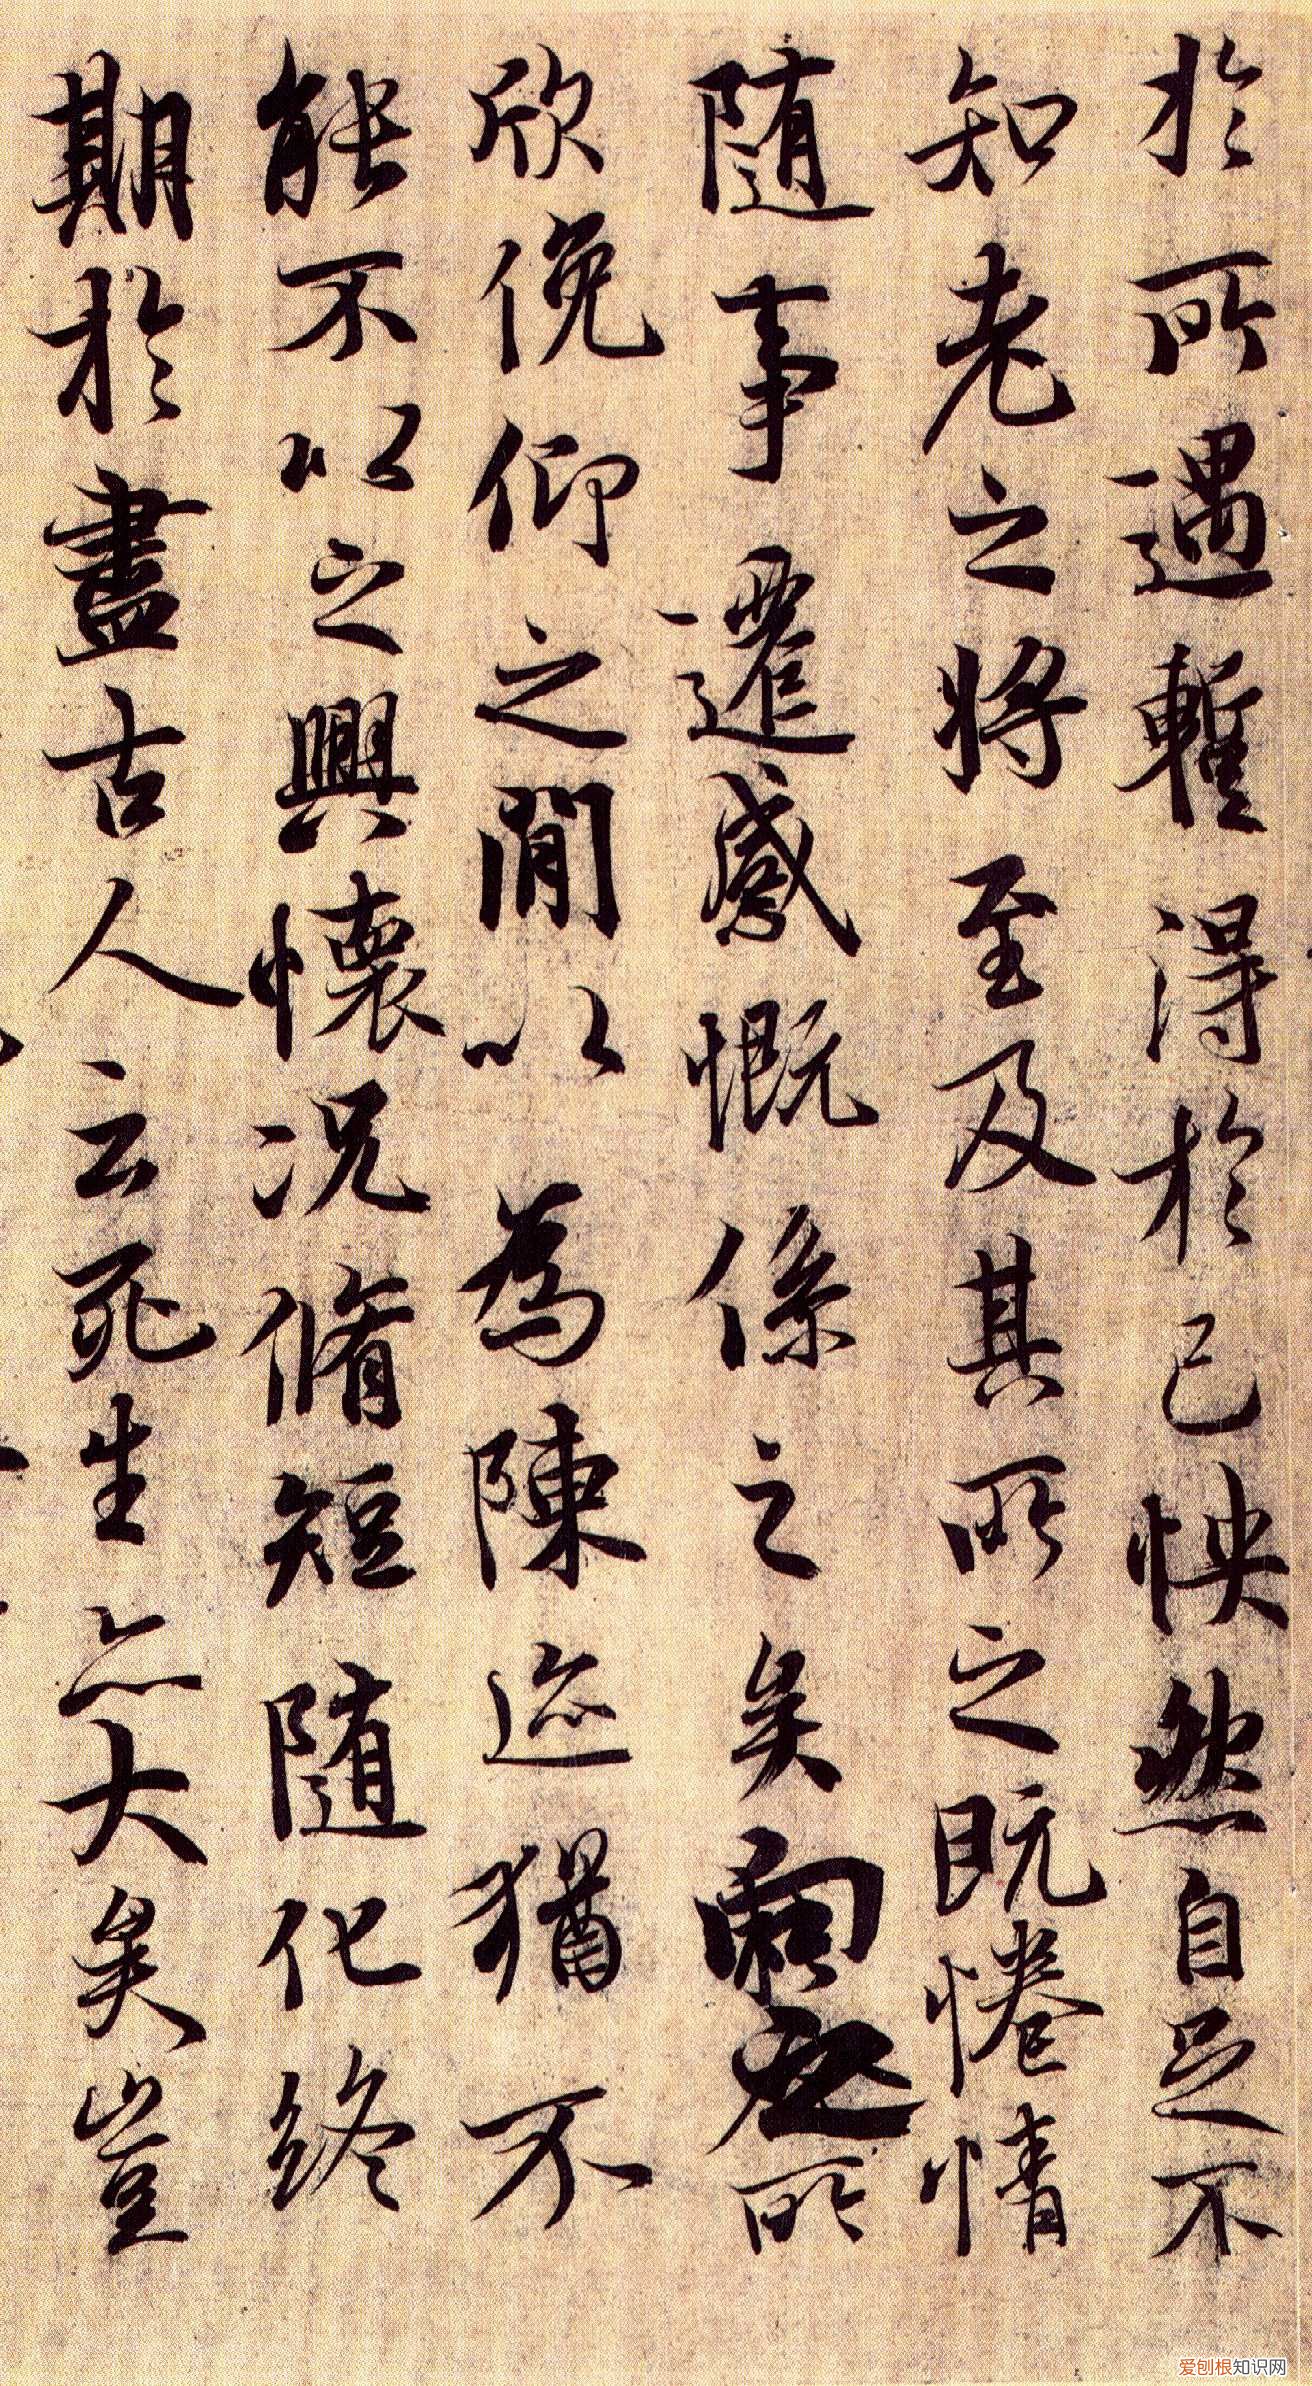 於所遇暫得於己怏然自足不
知老之將至及其所之既惓情
隨事遷感慨係之矣向之所
欣俛仰之閒以為陳迹猶不
能不以之興懷况脩短隨化終
期於盡古人云死生亦大矣豈
爱刨根知识网